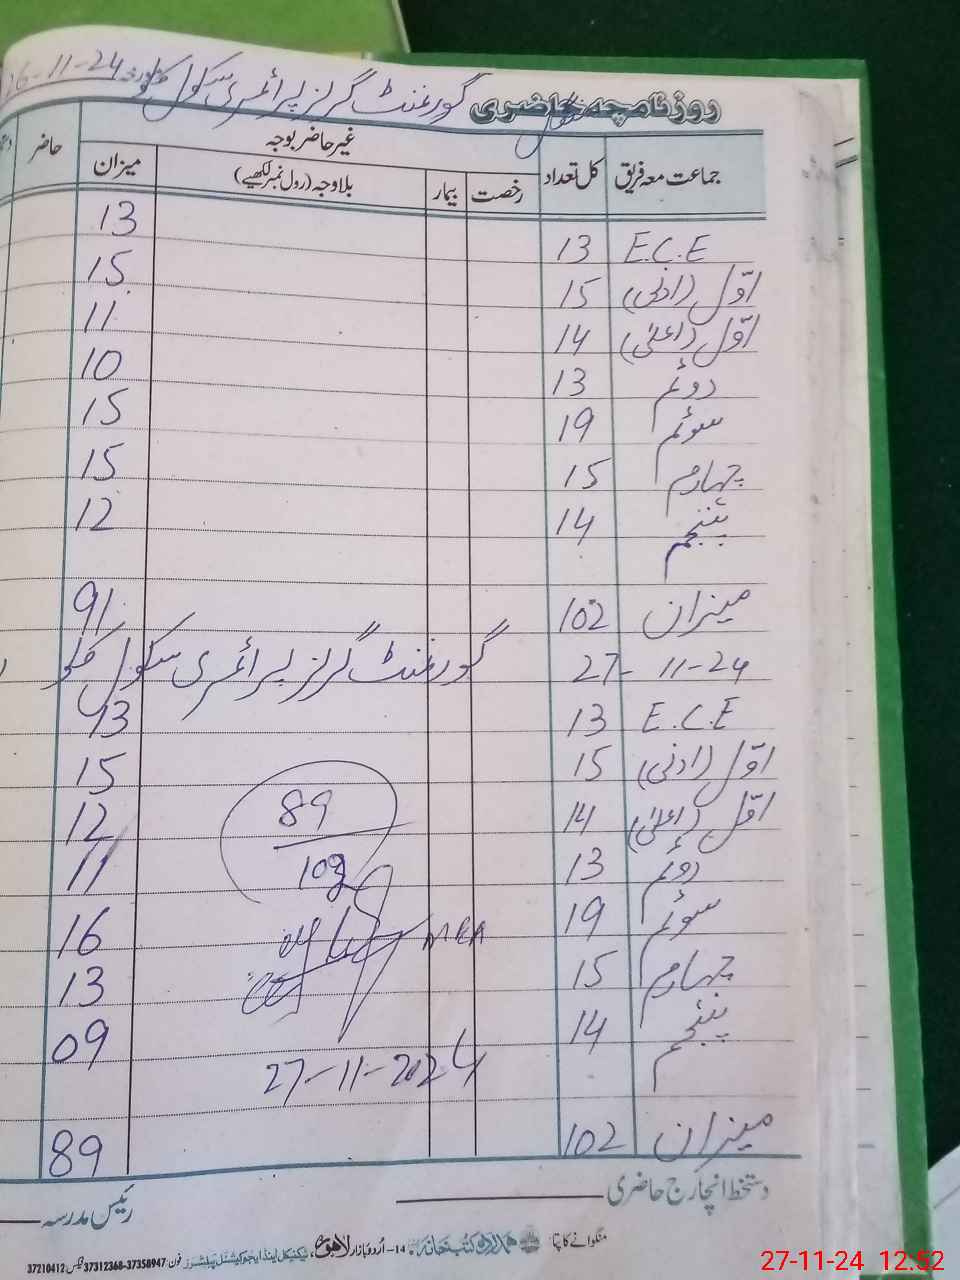 روزنامچہ حاضری گورنمنٹ گرلز پرائمری سکول 26-11-24
جماعت معہ فریق کل تعداد غیر حاضر بوجہ حاضر
رخصت بیمار بلاوجہ (رول نمبر لکھیے) میزان
E.C.E 13 13
اوّل (ادنٰی) 15 15
اوّل (اعلٰی) 14 11
دوئم 13 10
سوئم 19 15
چہارم 15 15
پنجم 14 12
میزان 102 91
27-11-24 گورنمنٹ گرلز پرائمری سکول
E.C.E 13 13
اوّل (ادنٰی) 15 15
اوّل (اعلٰی) 14 12
89
دوئم 13 11
سوئم 19 16
MEA
چہارم 15 13
پنجم 14 09
27-11-2024
میزان 102 89
دستخط انچارج حاضری
رئیس مدرسہ
منگوانے کا پتا: ہمدرد کتب خانہ 14-اُردو بازار لاہور، ٹیکنیکل اینڈ ایجوکیشنل پبلشرز فون: 37358947-37312368 فیکس 37210412
27-11-24 12:52